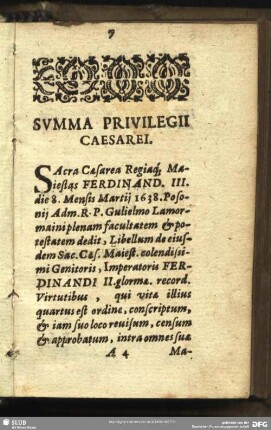 7
SVMMA PRIVILEGII
CAESAREI.
SAcra Cæsarea Regiaq́; Ma-
iestas FERDINAND. III.
die 8. Mensis Martij 1638. Poso-
nij Adm. R. P. Gulielmo Lamor-
maini plenam facultatem & po-
testatem dedit, Libellum de eius-
dem Sac. Cæs. Maiest. colendissi-
mi Genitoris, Imperatoris FER-
DINANDI II. glormæ. record.
Virtutibus, qui vitæ illius
quartus est ordine, conscriptum,
& iam suo loco reuisum, censum
& approbatum, intra omnes suæ
A 4 Ma-
SLUB
DFG